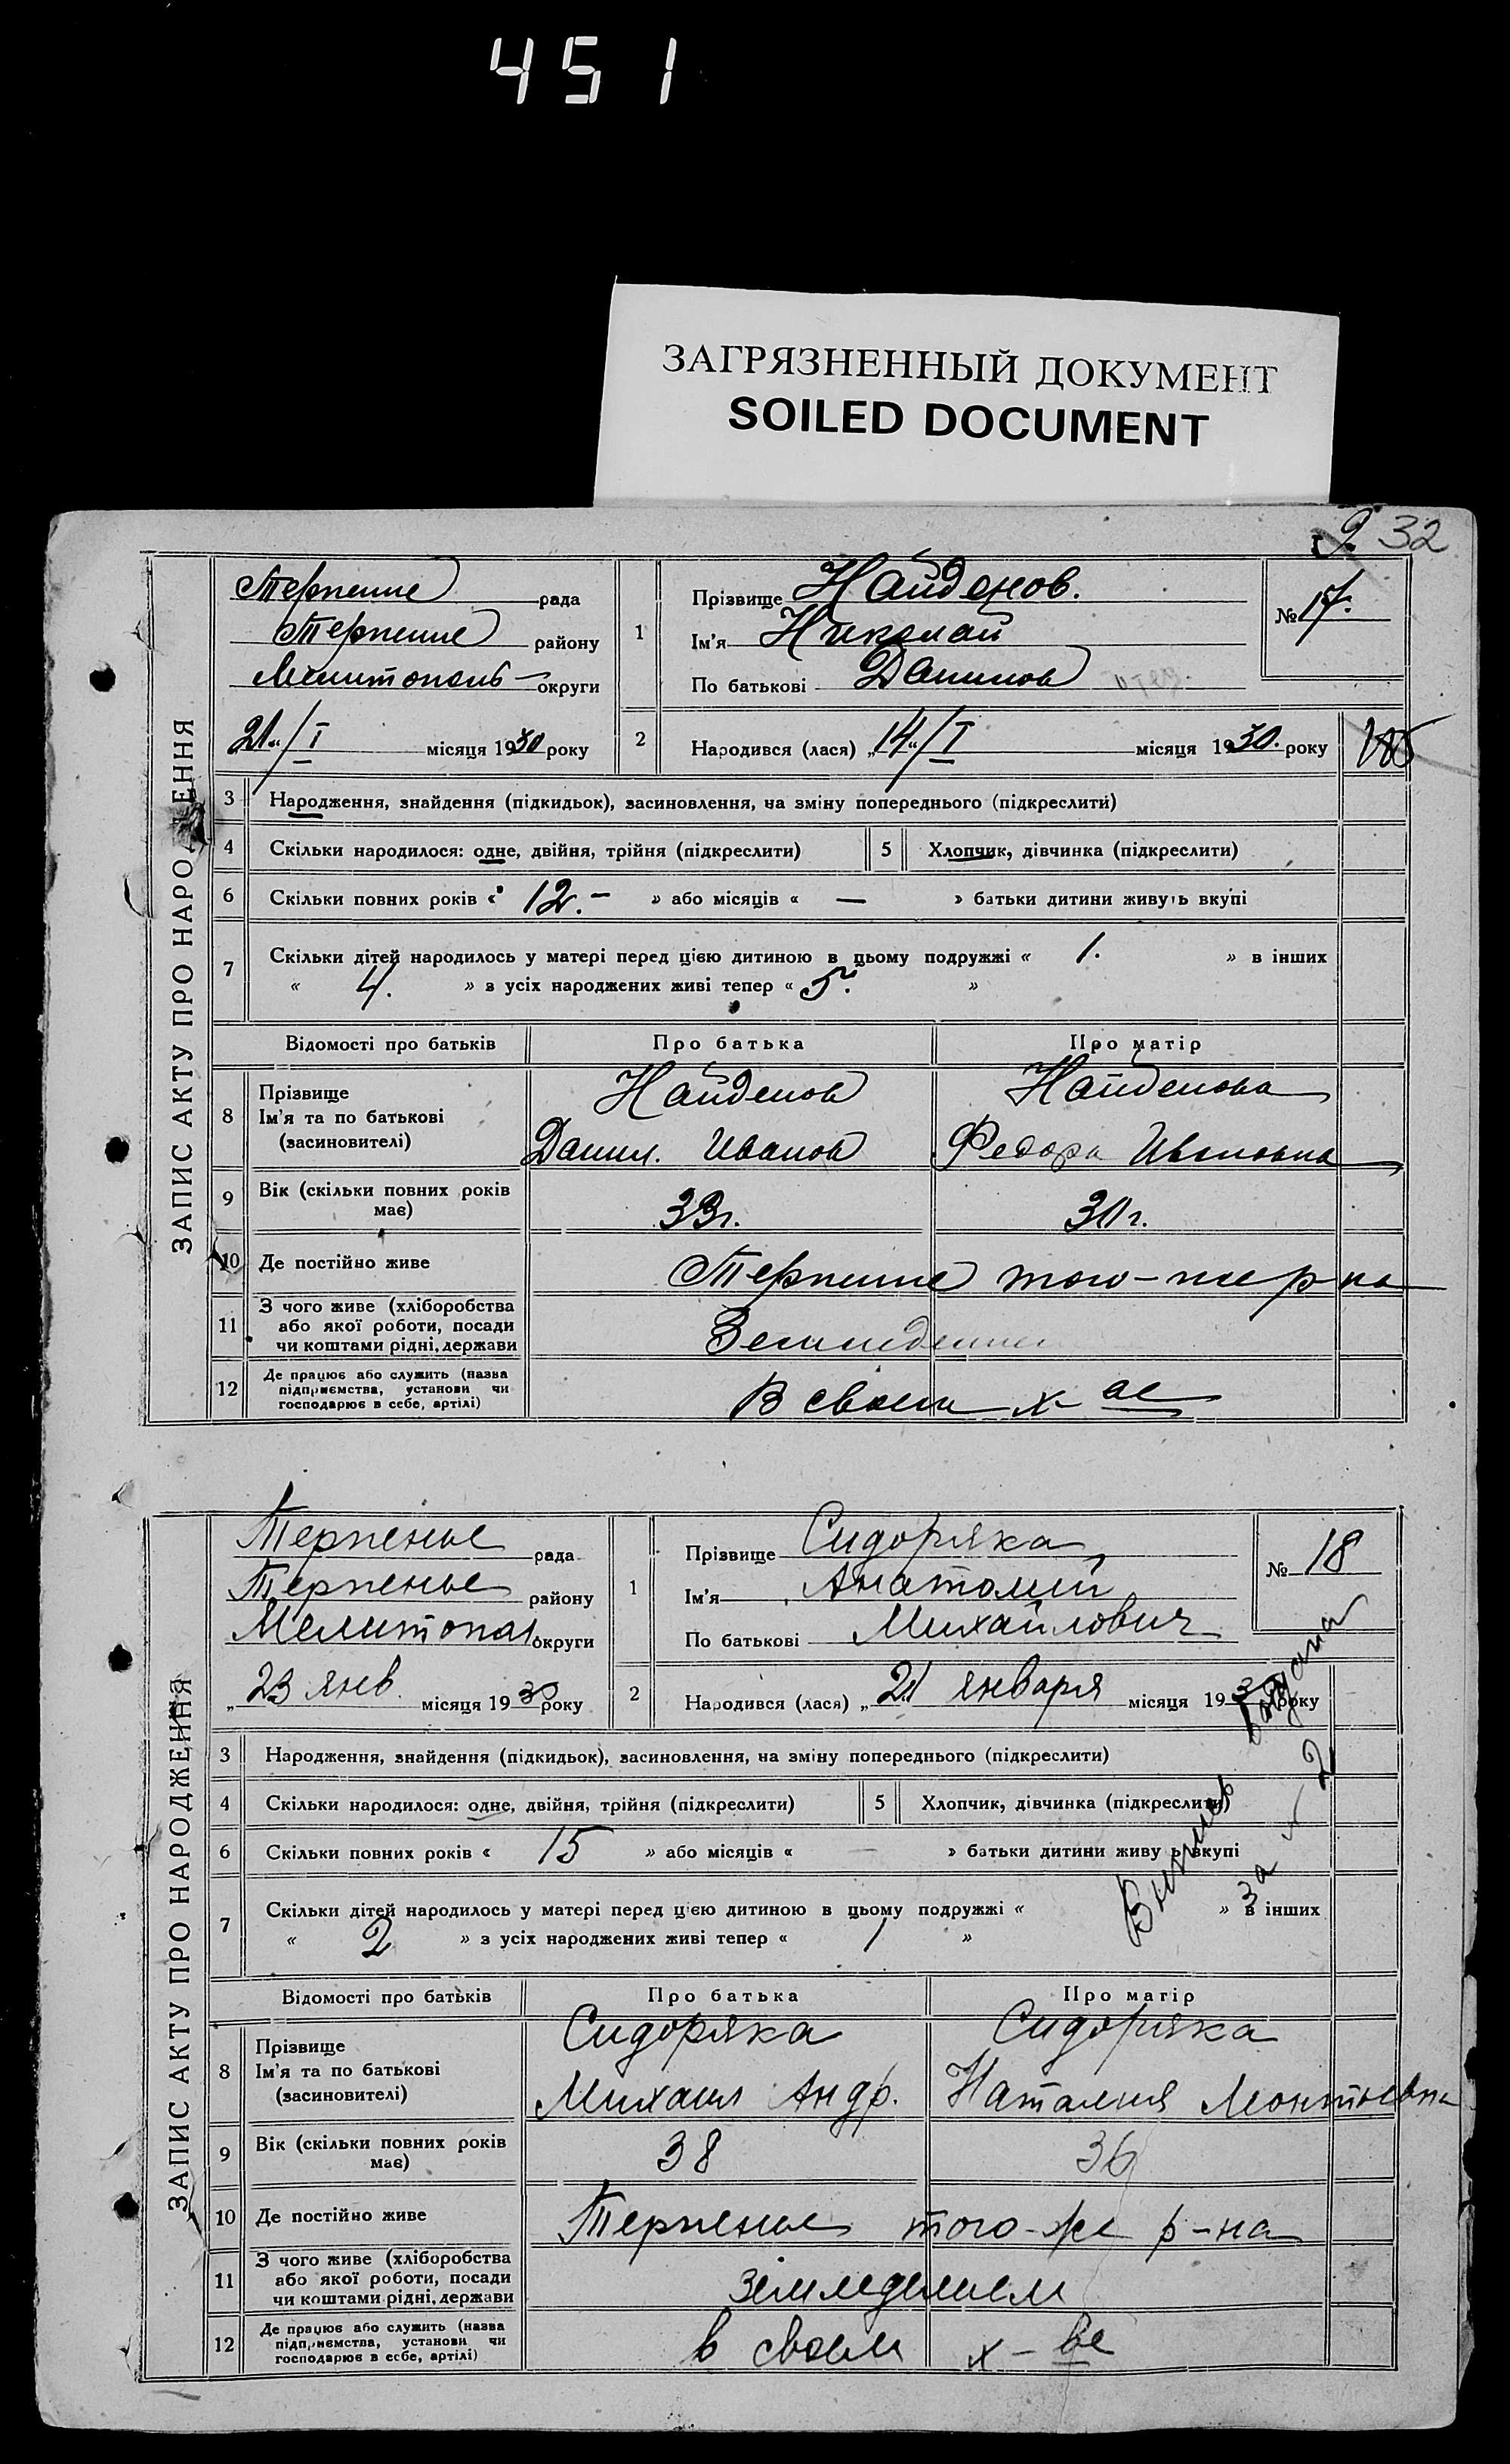 451
ЗАГРЯЗНЕННЫЙ ДОКУМЕНТ
SOILED DOCUMENT
32
ЗАПИС АКТУ ПРО НАРОДЖЕННЯ
Терпение рада
Терпение району
Мелитополь округи
21/I місяця 1930 року
1
Прізвище Найденов.
Ім'я Николай
По батькові Данилов
№ 17.
2
Народився (лася) „14"/I місяця 1930. року
185
3 Народження, знайдення (підкидьок), засиновлення, на зміну попереднього (підкреслити)
4 Скільки народилося: одне, двійня, трійня (підкреслити) 5 Хлопчик, дівчинка (підкреслити)
6 Скільки повних років « 12.- » або місяців « — » батьки дитини живуть вкупі
7 Скільки дітей народилось у матері перед цією дитиною в цьому подружжі « 1. » в інших
« 4. » з усіх народжених живі тепер « 5. »
Відомості про батьків Про батька Про матір
8 Прізвище
Ім'я та по батькові
(засиновителі)
Найденов
Данил. Иванов
Найденова
Федора Ивановна
9 Вік (скільки повних років
має)
33г. 30г.
10 Де постійно живе Терпение того-же р-на
11 З чого живе (хліборобства
або якої роботи, посади
чи коштами рідні, держави
Земледелием
12 Де працює або служить (назва
підприємства, установи чи
господарює в себе, артілі)
В своем х-ве
ЗАПИС АКТУ ПРО НАРОДЖЕННЯ
Терпенье рада
Терпенье району
Мелитопол округи
„23 янв. місяця 1930 року
1
Прізвище Сидоряка
Ім'я Анатолий
По батькові Михайлович
№ 18
2
Народився (лася) „21 января місяця 1930 року
3 Народження, знайдення (підкидьок), засиновлення, на зміну попереднього (підкреслити)
4 Скільки народилося: одне, двійня, трійня (підкреслити) 5 Хлопчик, дівчинка (підкреслити)
6 Скільки повних років « 15 » або місяців « — » батьки дитини живуть вкупі
7 Скільки дітей народилось у матері перед цією дитиною в цьому подружжі « » в інших
« 2 » з усіх народжених живі тепер « 1 »
Выпись выдана
за № 2
Відомості про батьків Про батька Про матір
8 Прізвище
Ім'я та по батькові
(засиновителі)
Сидоряка
Михаил Андр.
Сидоряка
Наталия Леонтьевна
9 Вік (скільки повних років
має)
38 36
10 Де постійно живе Терпенье того-же р-на
11 З чого живе (хліборобства
або якої роботи, посади
чи коштами рідні, держави
земледелием
12 Де працює або служить (назва
підприємства, установи чи
господарює в себе, артілі)
в своем х-ве